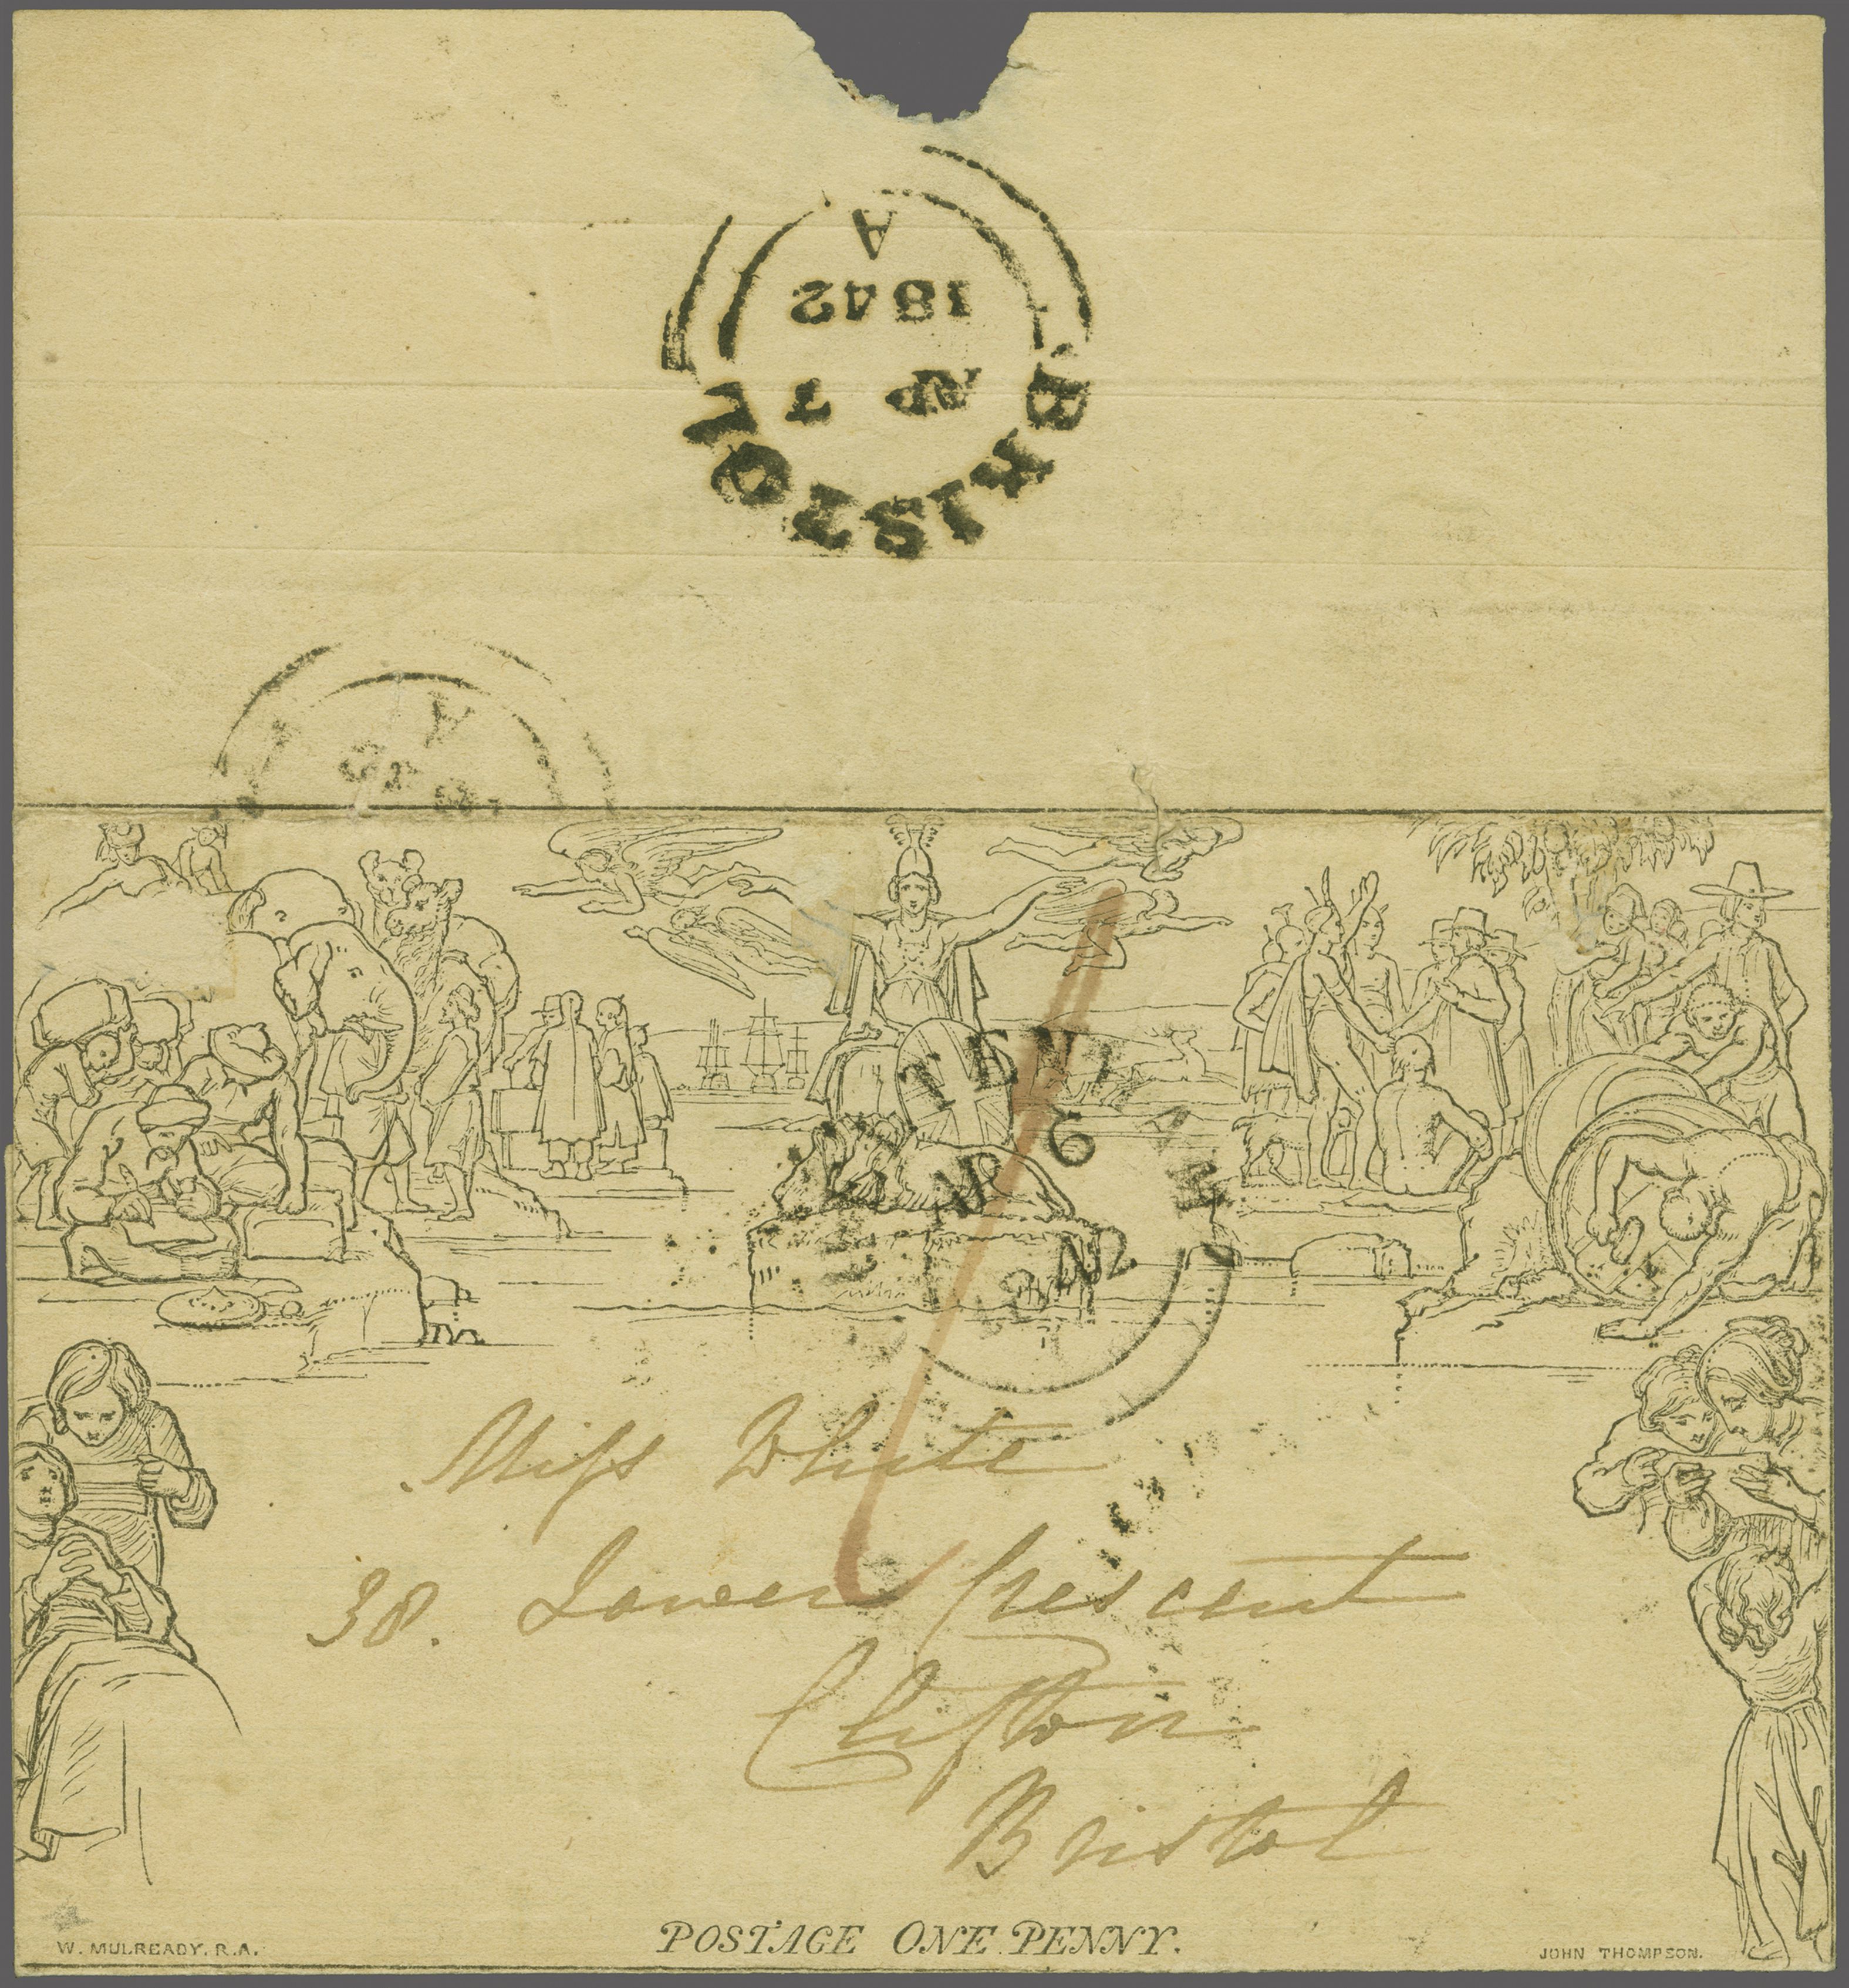 A
1842
AP 7
BRISTOL
A
TEN
6
AP
1842
Miss White
38. Lower Crescent
Clifton
Bristol
POSTAGE ONE PENNY.
W. MULREADY. R.A.
JOHN THOMPSON.